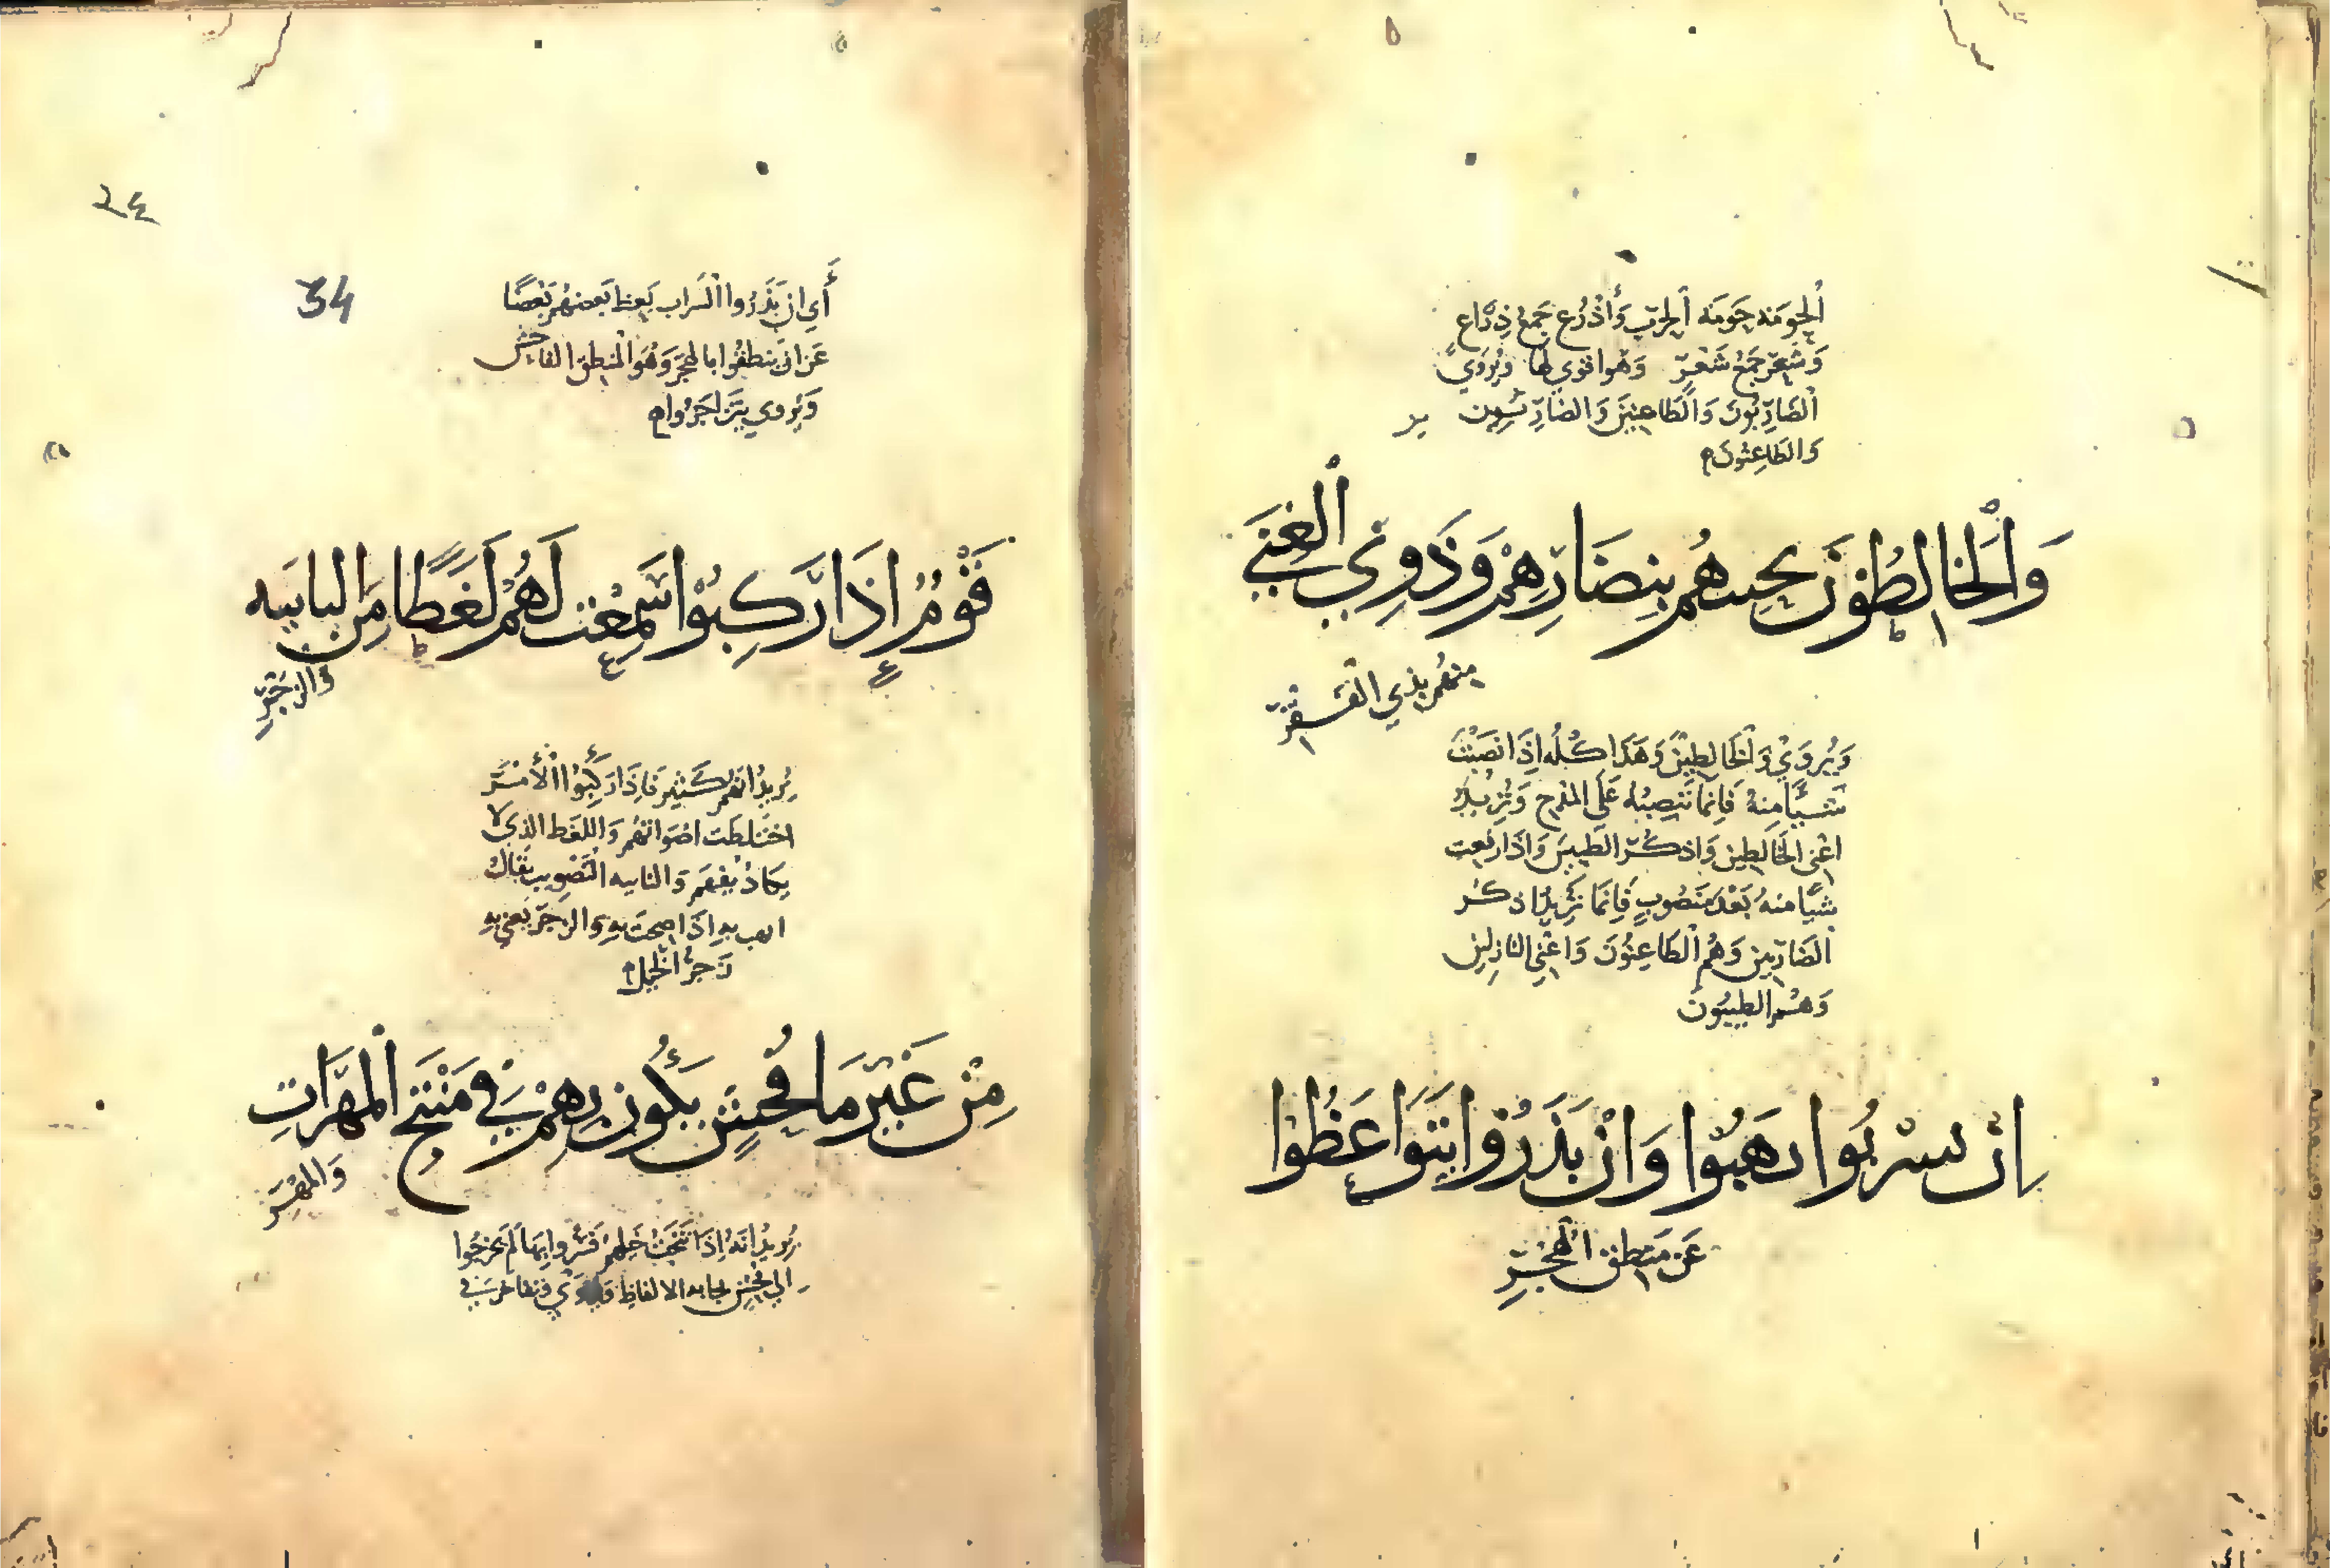 اَلْحَوْمَة حَوْمَة اَلْحَرْبِ وَأَذْرُع جَمْعُ ذِرَاعٍ
وَشُعْر جَمْعُ شَعْرٍ وَهُوَ اقوى لها وَيُرْوَى
اَلضَّارِبُونَ وَالطَّاعِنِينَ وَالضَّارِبِين
وَالطَّاعِنُونَ
وَاَلْخَالِطُوْنَ نَحِيتَهُم بِنِضَارِهِمْ وَذَوِي اَلْغِنَى
مِنْهُم بِذِي الْفَقْرِ
وَيُرْوَى وَالْخَالِطِيْنَ وَهَذَا كُلُّه إِذَا نَصَبْتَ
شَيْئًا مِنْهُ فَإِنَّمَا تَنْصِبُهُ عَلَى الْمَدْحِ وَتُرِيدُ
اعْنِى الْخَالِطِين وَاذكُر الطَّيِبينَ وَإِذَا رفعت
شَيْئًا مِنْهُ بَعْدَ مَنْصُوبٍ فَإِنَّمَا تُرِيدُ اذكُر
الضَّارِبِين وَهُم الطَّاعِنُونَ وَاعْنِي النازِلِين
وَهُمْ الطيِبُونَ
إِنْ يشْرَبُوا يهَبُوْا وَإِنْ يَذَرُوْا يَتَوَاعَظُوْا
عَن مَنْطِقِ اَلْهُجْرِ
34
أَي ان يَذَرُوا الشَراب يَعِظ بَعضهُم بَعْضًا
عَن ان يَنطِقُوا بالهُجْر وَهُوَ الْمَنطِق الفَاحِش
وَيُروى يَتَزاجَرُوا
قَوْمٌ إِذَا رَكِبُوْا سَمِعْتَ لَهُمْ لَغَطًا مِنَ التاييه
وَالزَّجْرِ
يُرِيدُ انَّهُم كَثِير فَاِذَا رَكِبُوْا الْأَمْرَ
اخْتَلَطَت اصْوَاتُهُم وَاللغَط الذِي لَا
يكَادُ يُفْهَم وَالتاييه التَّصْوِيب يُقَالُ
ايهت بِهِ إذَا صِحت بِهِ والزَجْر يَعْنِي بِهِ
زَجْرُ الْخَيل
مِنْ غَيْرِ مَا فُحْشٍ يَكُونُ بِهِمْ فِيْ مَنْتِجِ اَلْمُهَرَاتِ
وَالْمُهْرِ
يُرِيدُ انَّهُ إِذَا نُتِجَتْ خَيلُهُمْ فَسُرُّوا بِهَا لَم يَخرُجُوا
الى فُحْشٍ